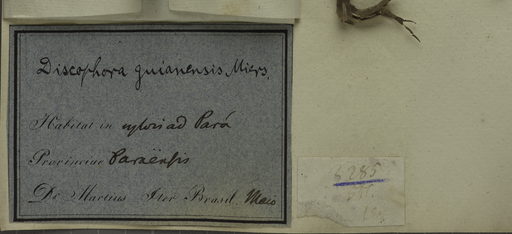 Discophora guianensis Miers.
Habitat in sylvis ad Pará
Provinciae Paraënsis
Dr. Martius Iter Brasil. Maio
6285